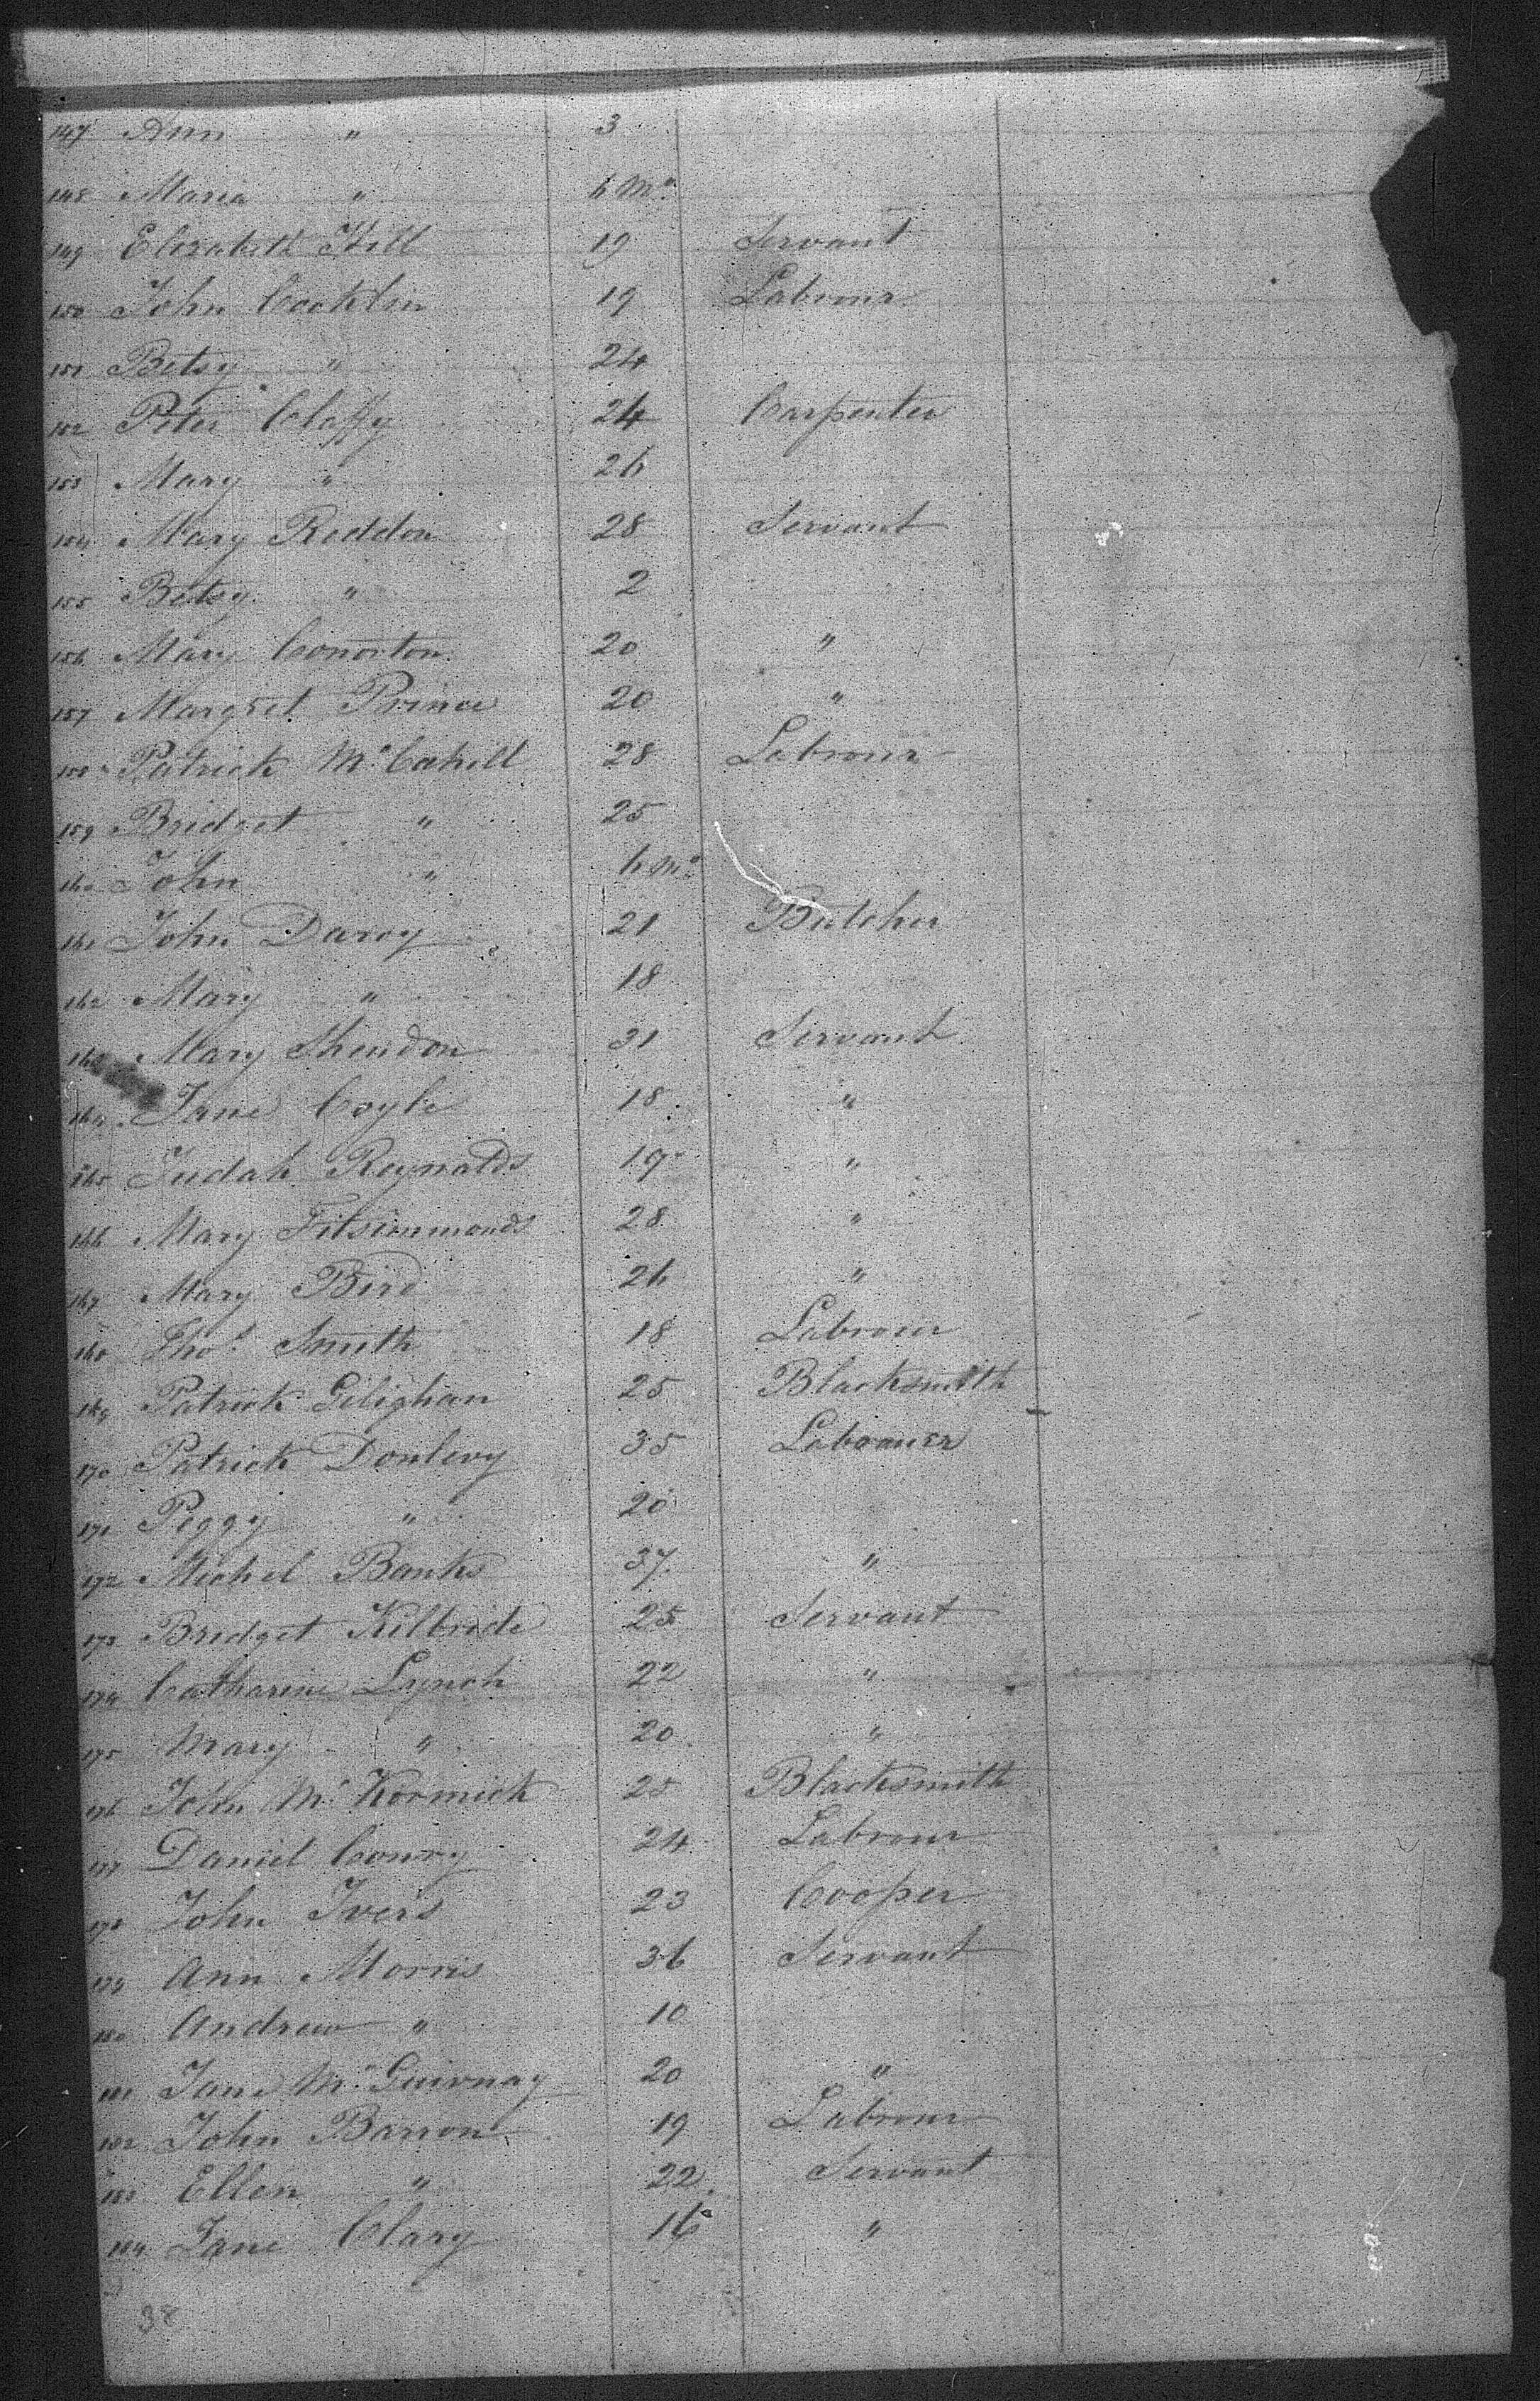 147 Ann " 3
148 Maria " 6 Mo
149 Elizabeth Hill 19 Servant
150 John Cocklin 19 Labrour
151 Betsy " 24
152 Peter Claffy 24 Carpenter
153 Mary " 26
154 Mary Reddon 28 Servant
155 Betsy " 2
156 Mary Conorton 20 "
157 Margret Prince 20 "
158 Patrick Mc Cahill 28 Labrour
159 Bridget " 25
160 John " 6 Mo
161 John Darcy 21 Butcher
162 Mary " 18
163 Mary 31 Servant
164 Jane Coyle 18 "
165 Judah Reynalds 19 "
166 Mary Fitsimmonds 28 "
167 Mary Bird 26 "
168 Thos Smith 18 Labrour
169 Patrick Gilighan 25 Blacksmith
170 Patrick Donlevy 35 Labrourer
171 Peggy " 20
172 Michel Banks 37 "
173 Bridget Kilbride 25 Servant
174 Catharine Lynch 22 "
175 Mary " 20 "
176 John Mc Kormick 25 Blacksmith
177 Daniel Conry 24 Labrour
178 John Ivers 23 Cooper
179 Ann Morris 36 Servant
180 Andrew " 10
181 Jane Mc Guirnay 20 "
182 John Barron 19 Labrour
183 Ellen " 22 Servant
184 Jane Clary 16 "
38